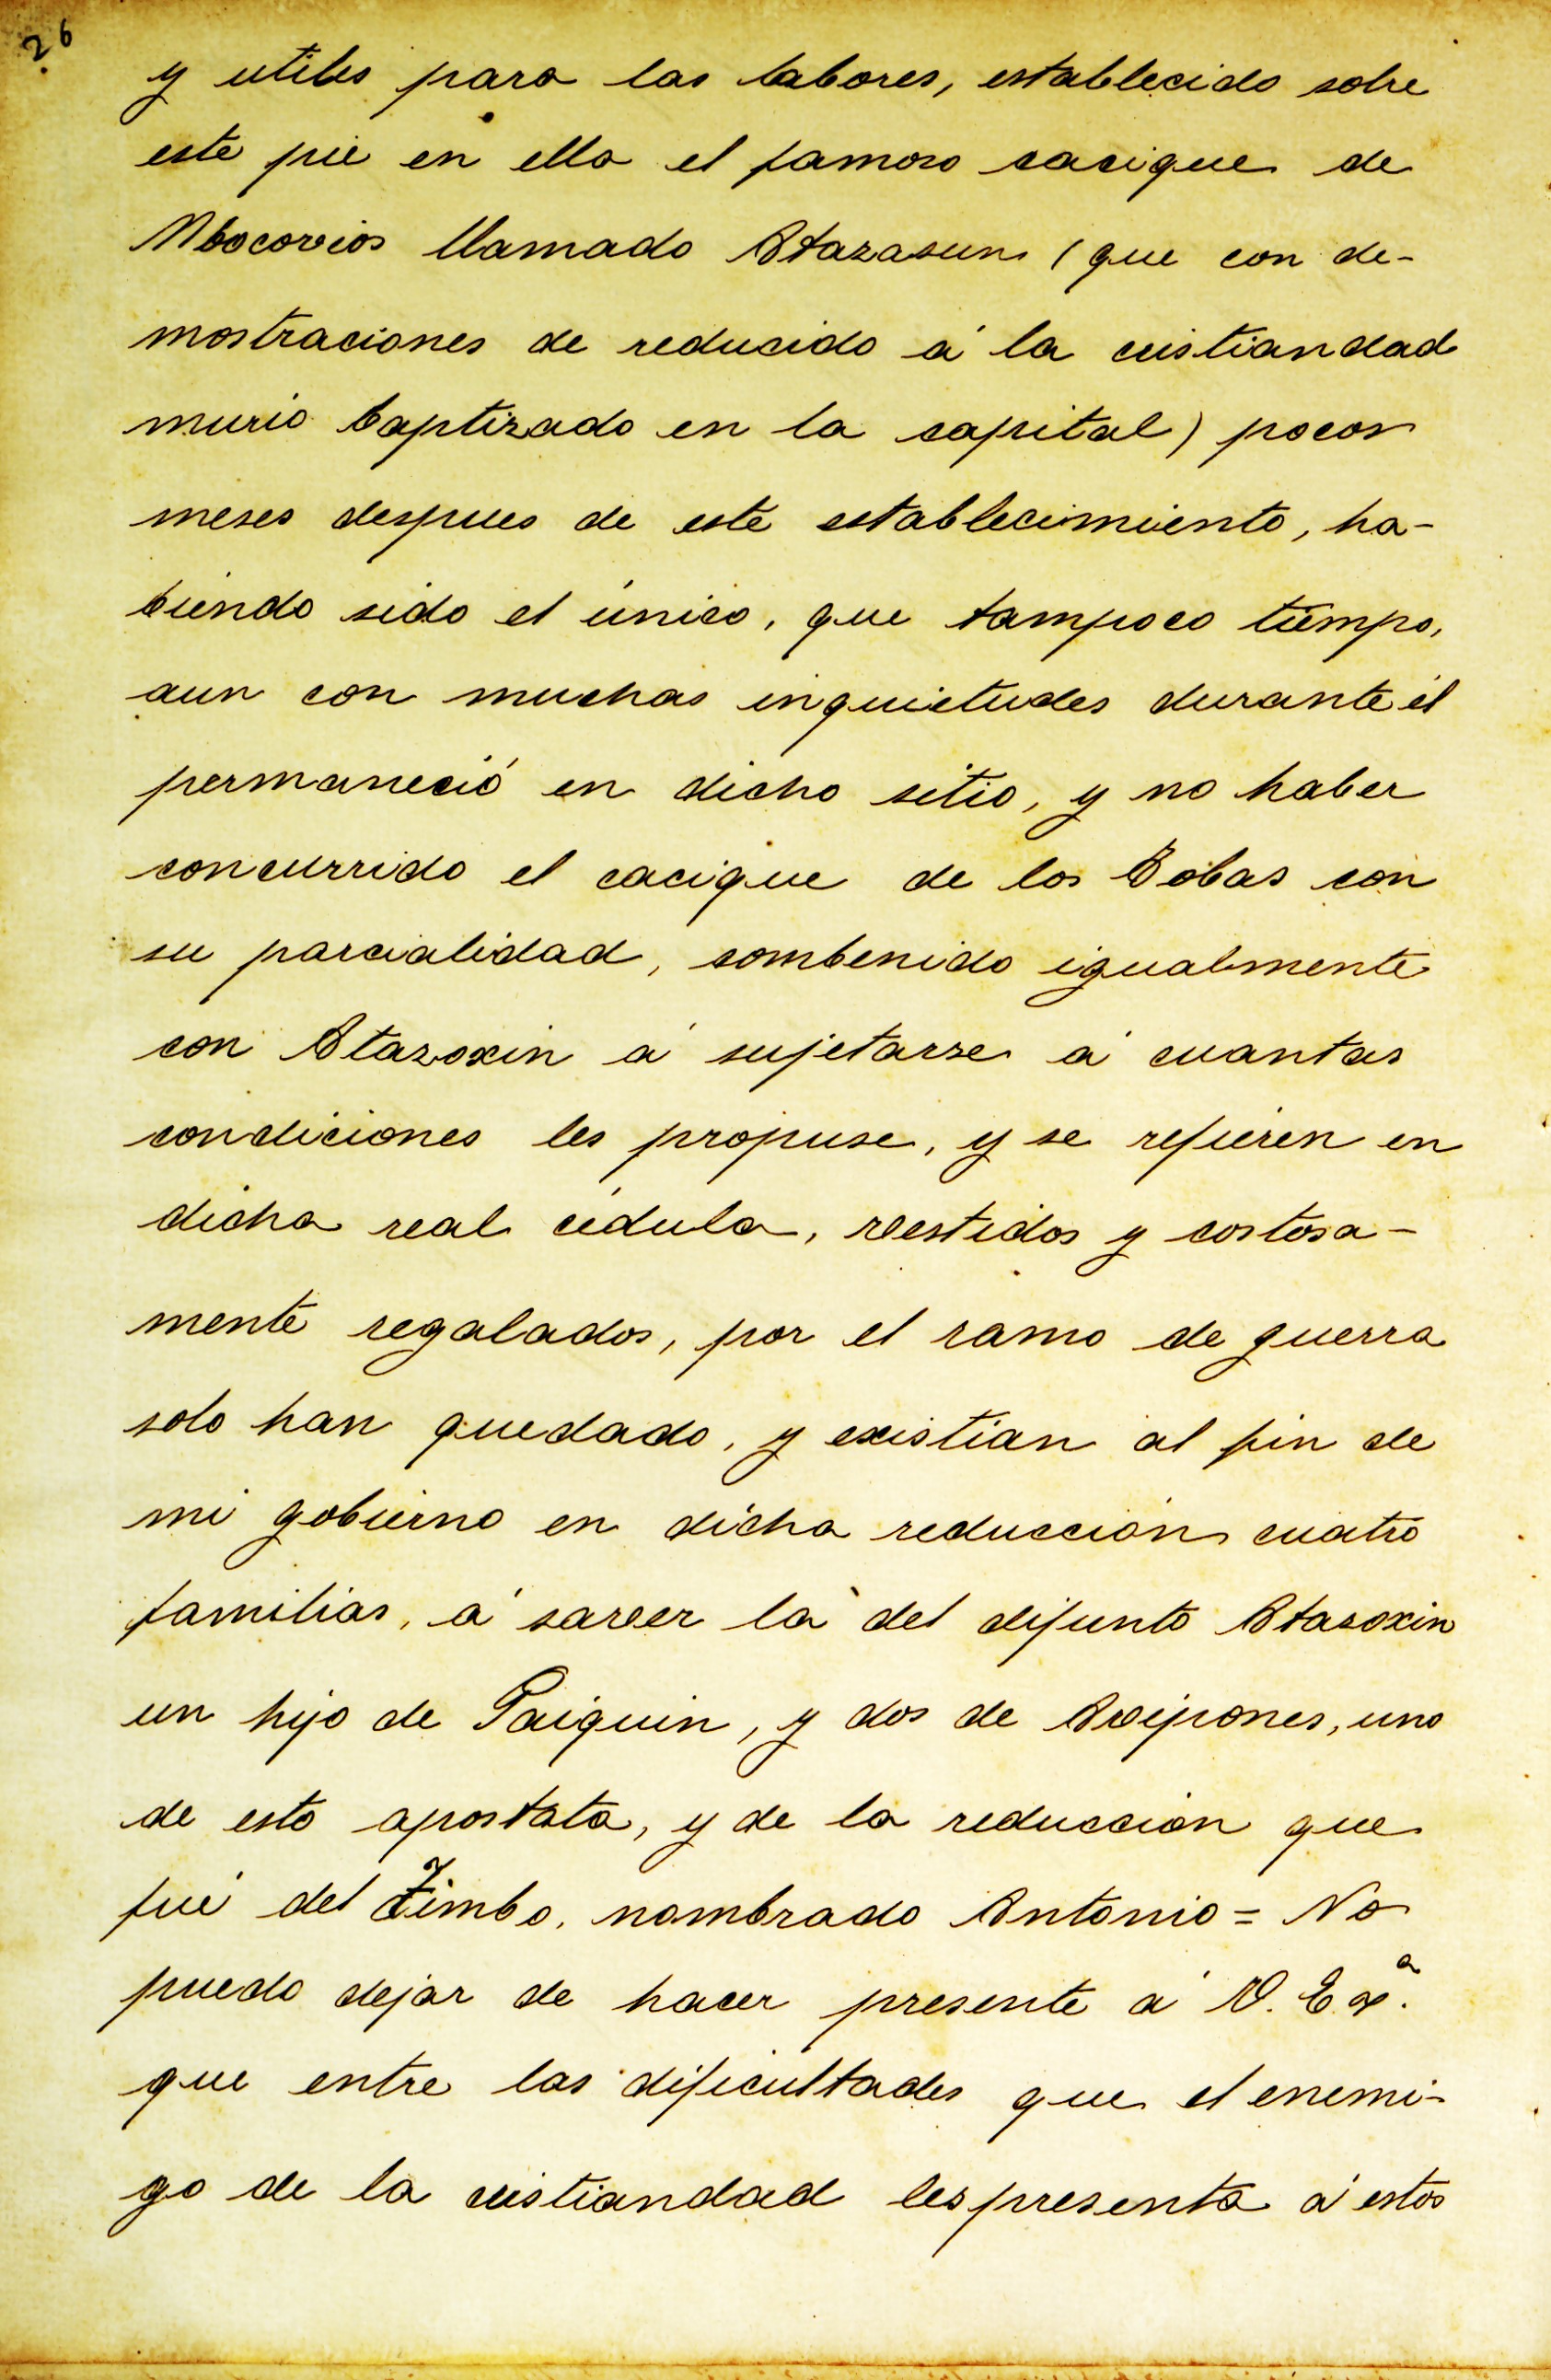 26
y utiles para las labores, establecido sobre
este pie en ella el famoso cacique de
Mbocovios llamado Atazasun (que con de-
mostraciones de reducido á la cristiandad
murio baptizado en la capital) pocos
meses despues de este establecimiento, ha-
biendo sido el único, que tampoco tiempo,
aun con muchas inquietudes durante él
permaneció en dicho sitio, y no haber
concurrido el cacique de los Tobas con
su parcialidad, combenido igualmente
con Atazoxin á sujetarse á cuantas
condiciones les propuse, y se refieren en
dicha real cédula, vestidos y costosa-
mente regalados, por el ramo de guerra
solo han quedado, y existian al fin de
mi gobierno en dicha reduccion cuatro
familias, á saver la del difunto Atasoxin
un hijo de Paiquin, y dos de Avipones, uno
de esto apostata, y de la reduccion que
fué del Timbo, nombrado Antonio = No
puedo dejar de hacer presente á V. Exª.
que entre las dificultades que el enemi-
go de la cristiandad les presenta á estos